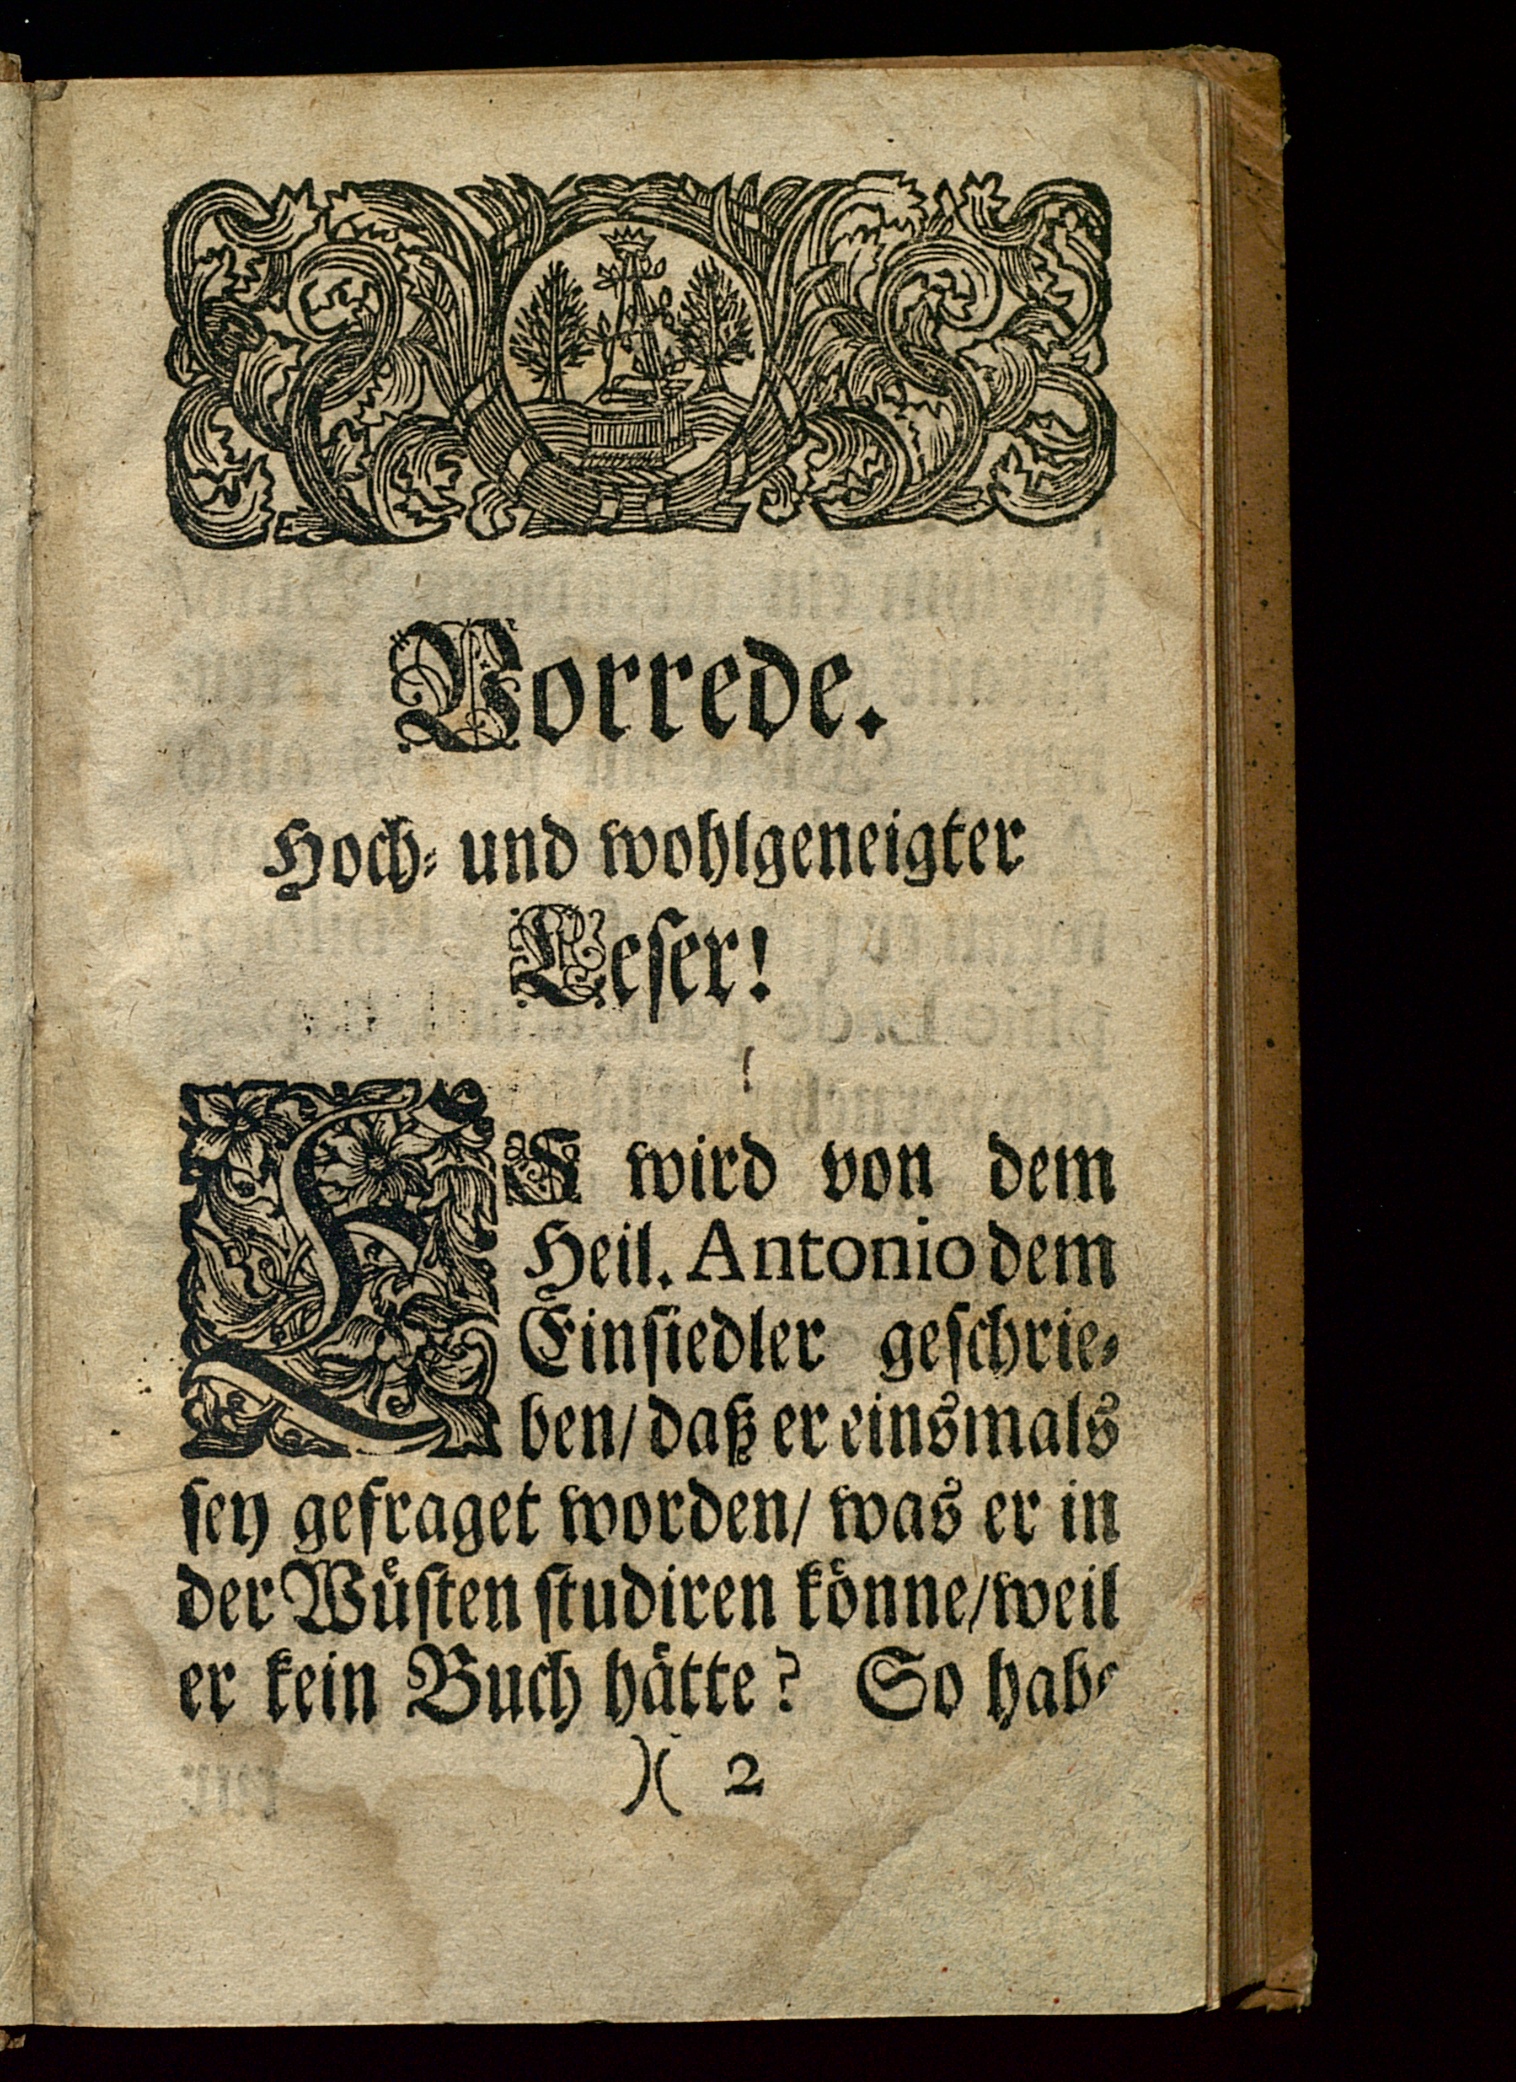 Vorrede.
Hoch- und wohlgeneigter
Leser!
ES wird von dem
Heil. Antonio dem
Einsiedler geschrie-
ben/ daß er einsmals
sey gefraget worden/ was er in
der Wüsten studiren könne/weil
er kein Buch hätte? So habe
)( 2